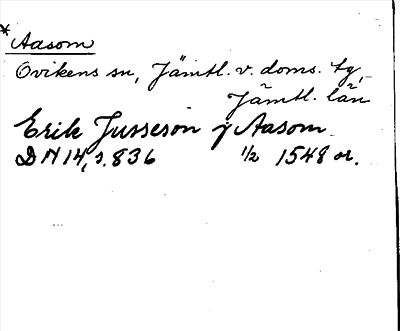 * Aasom
Ovikens sn, Jämtl. v. doms. tg,
Jämtl. län
Erik Jusseson j Aasom.
DN 14, s. 836 1/2 1548 or.